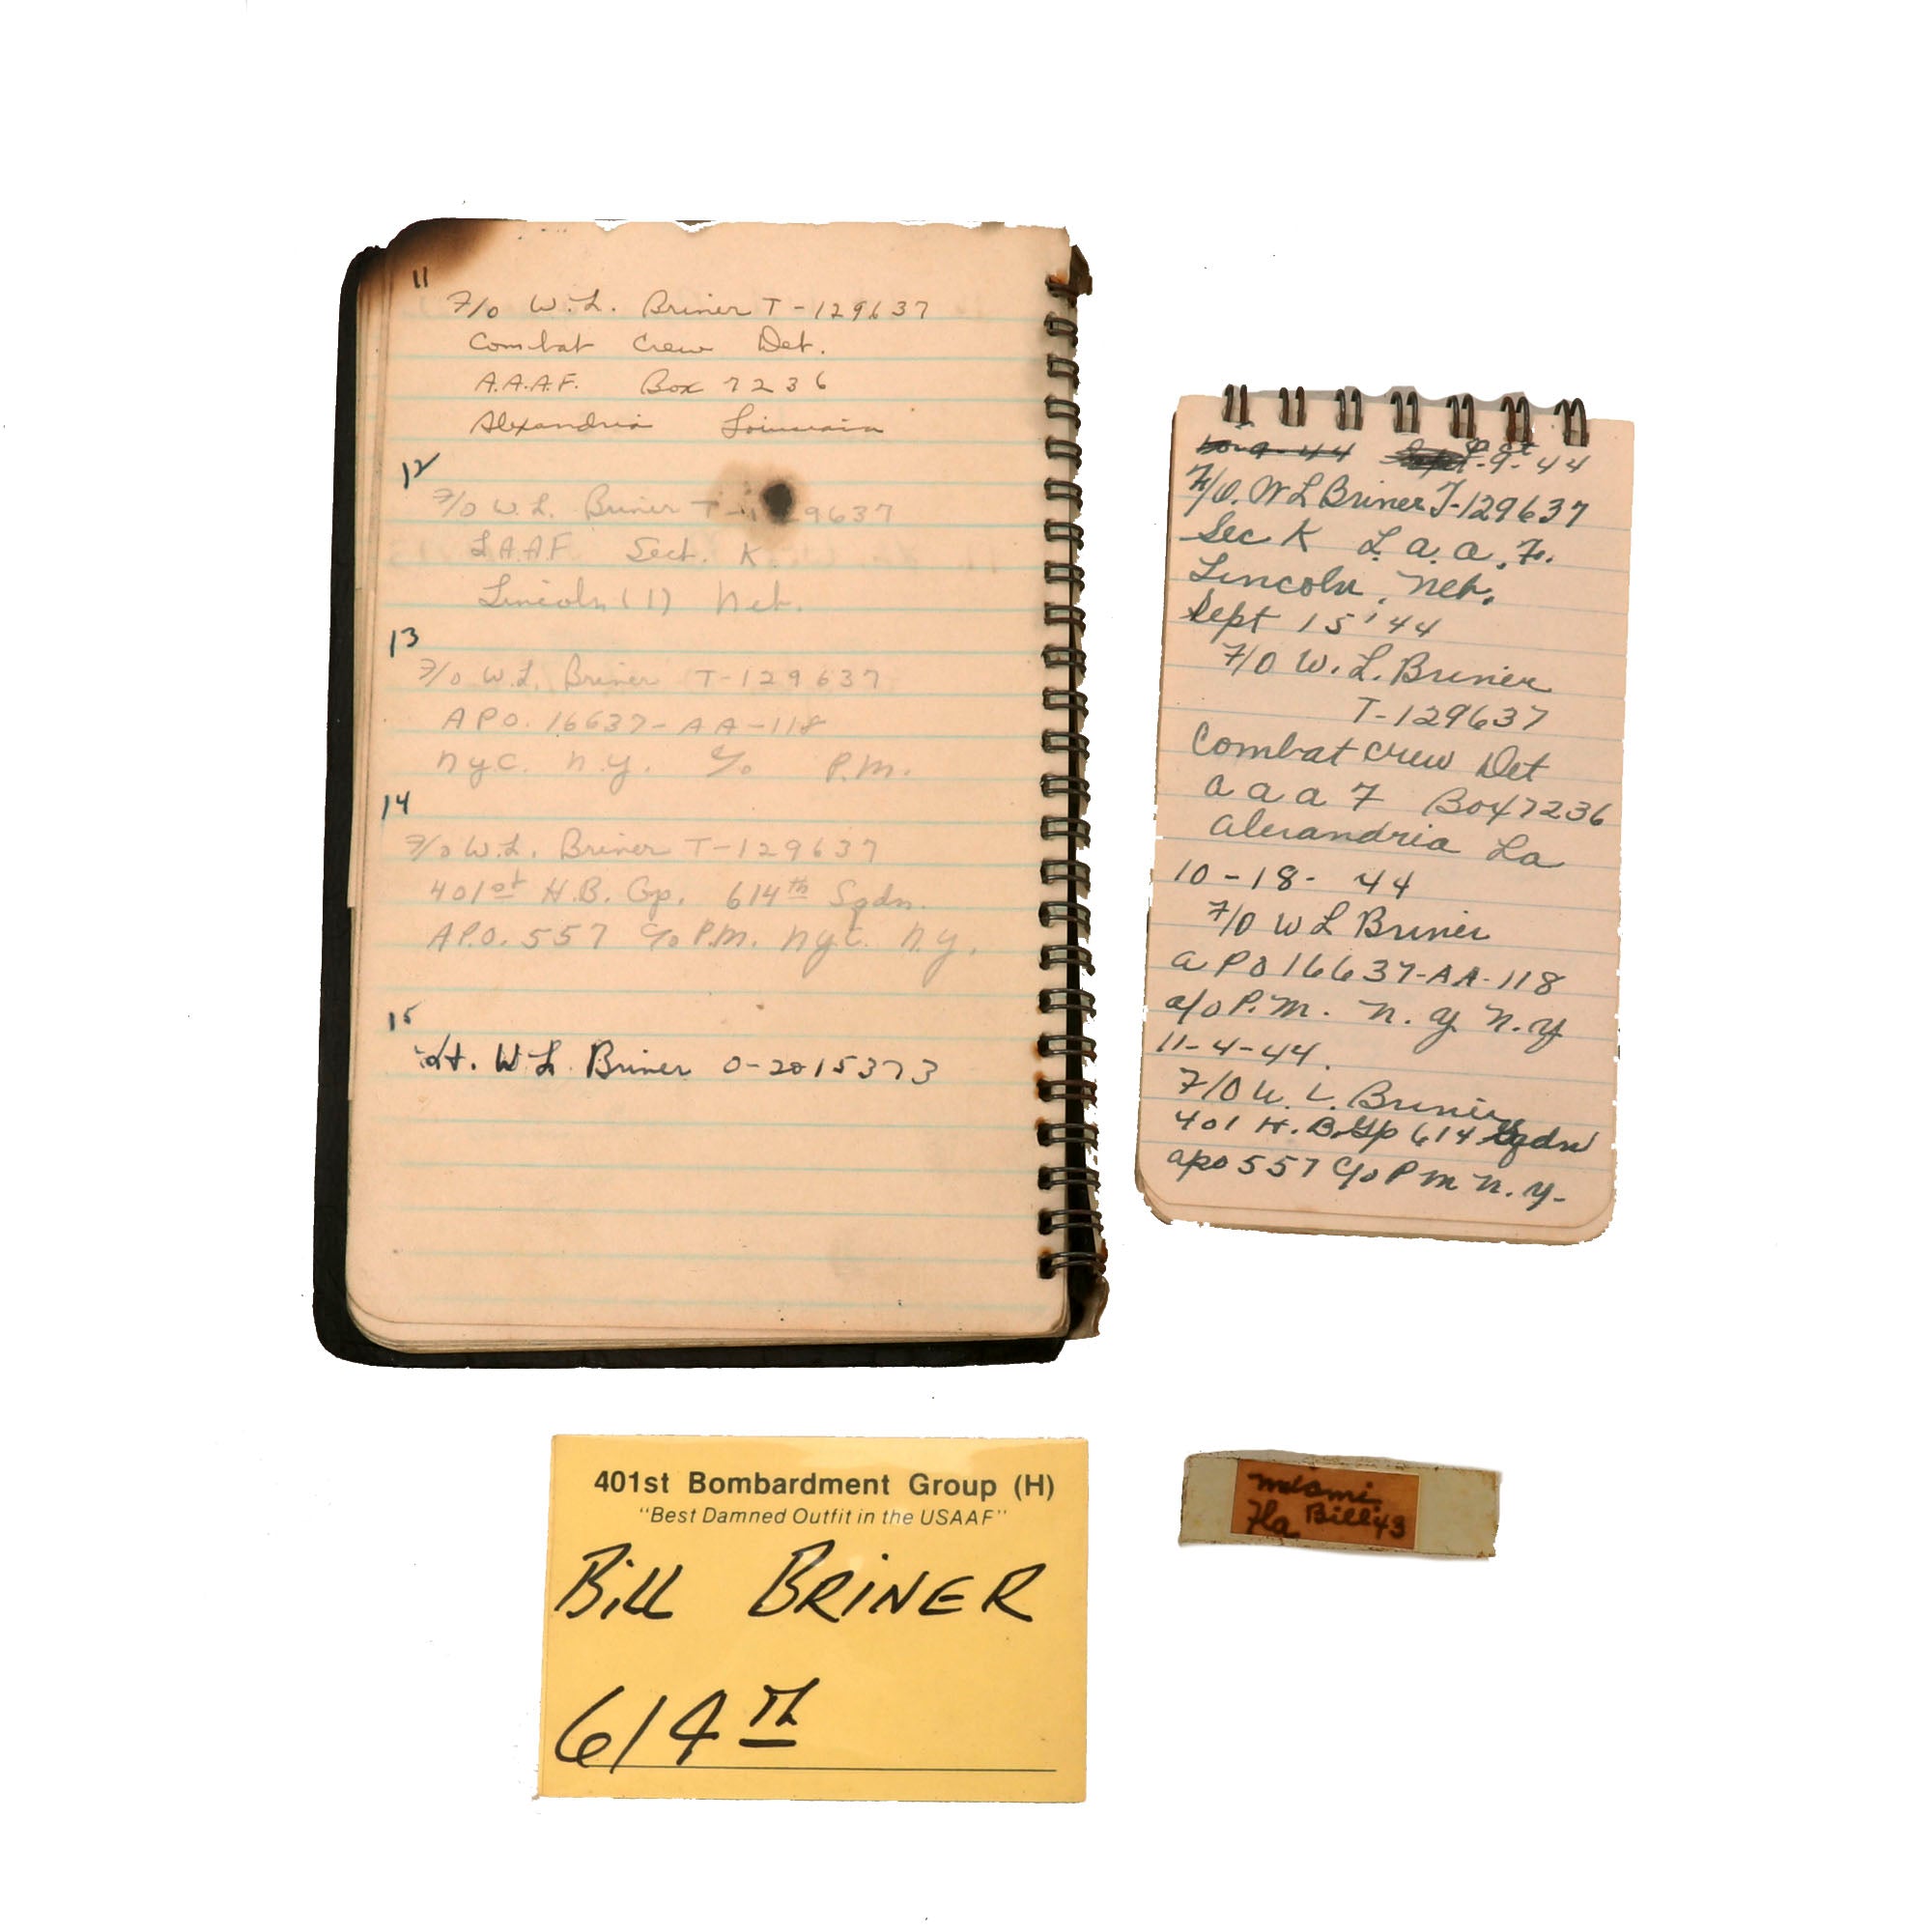 11
F/O W.L. Briner T-129637
Combat Crew Det.
A.A.A.F. Box 7236
Alexandria Loiusiain
12
F/O W.L. Briner T-129637
L.A.A.F. Sect. K
Lincoln (1) Neb.
13
F/O W.L. Briner T-129637
APO. 16637-AA-118
NYC. N.Y. c/o P.M.
14
F/O W.L. Briner T-129637
401st H.B. Gp. 614th Sqdn.
A.P.O. 557 c/o P.M. NYC. N.Y.
15
Lt. W L. Briner O-2015373
9-44 Sept-9-44
F/O. W L Briner T-129637
Sec K L.a.a.F.
Lincoln, Neb.
Sept 15 '44
F/O W.L. Briner
T-129637
Combat Crew Det
a a a F Box 7236
Alexandria La
10-18-44
F/O W L Briner
a P O 16637-AA-118
c/o P.M. N.Y N.Y
11-4-44.
F/O W. L. Briner
401 H.B.Gp 614 Sqdn
apo 557 c/o P M N.Y-
401st Bombardment Group (H)
"Best Damned Outfit in the USAAF"
Bill BRINER
614TH
Miami
Fla Bill 43